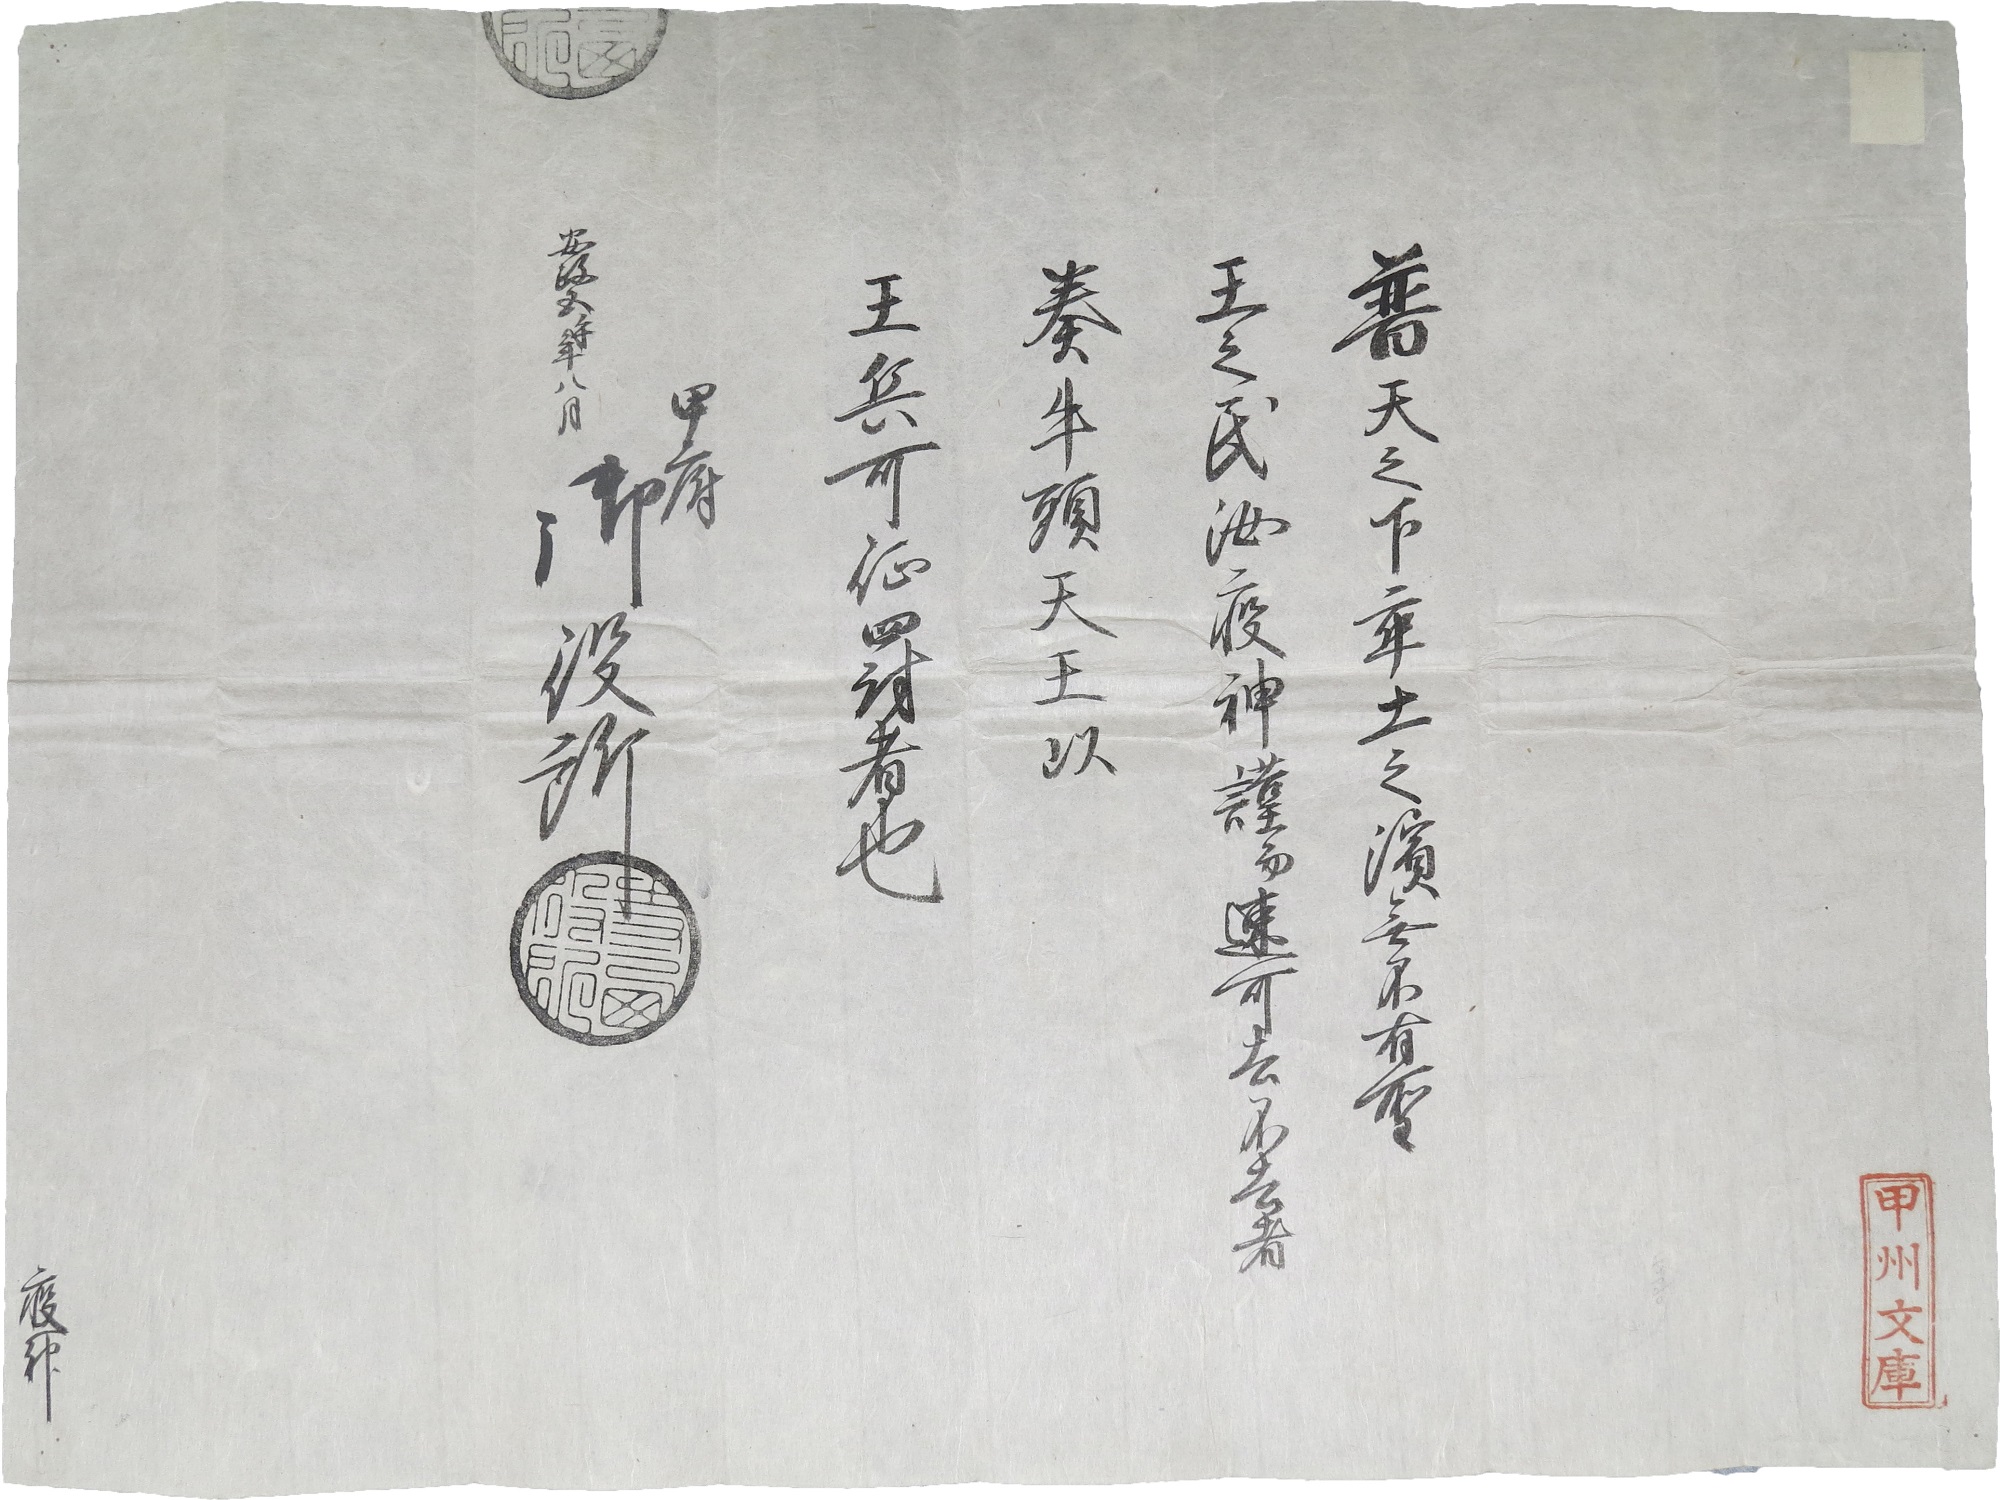 普天之下率土之濱無不有聖
王之民汝疫神謹而速可去不去者
奏牛頭天王以
王兵可征罰者也
甲府
御役所
安政五年八月
疫神
甲州文庫